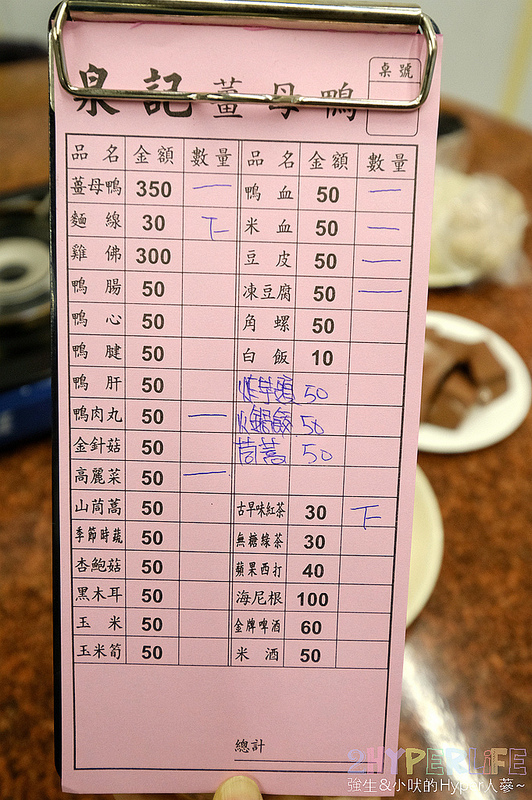 泉記薑母鴨
桌號
品名 金額 數量 品名 金額 數量
薑母鴨 350 一 鴨血 50 一
麵線 30 下 米血 50 一
雞佛 300 豆皮 50 一
鴨腸 50 凍豆腐 50 一
鴨心 50 角螺 50
鴨腱 50 白飯 10
鴨肝 50 炸芋頭 50
鴨肉丸 50 一 火鍋餃 50
金針菇 50 茼蒿 50
高麗菜 50 一
山茼蒿 50 古早味紅茶 30 下
季節時蔬 50 無糖綠茶 30
杏鮑菇 50 蘋果西打 40
黑木耳 50 海尼根 100
玉米 50 金牌啤酒 60
玉米筍 50 米酒 50
總計
2HYPERLiFE
強生&小吠的Hyper人蔘~